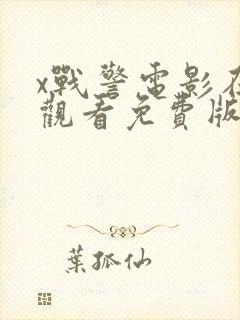 x戰警電影在
觀看免費版
葉孤仙